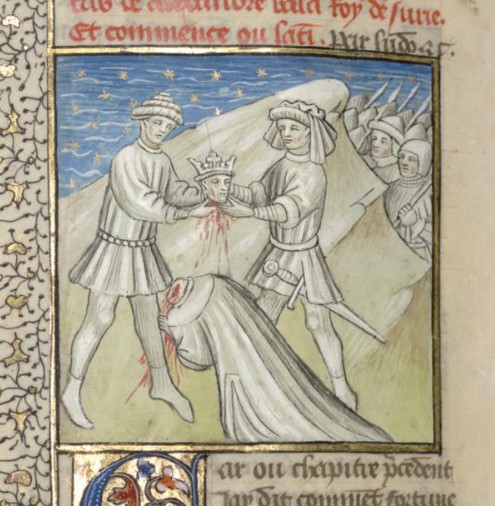 de alexandre bala roy de surie.
Et commence ou lati.
Car ou chapitre pcedent
Jay dit commēt fortune